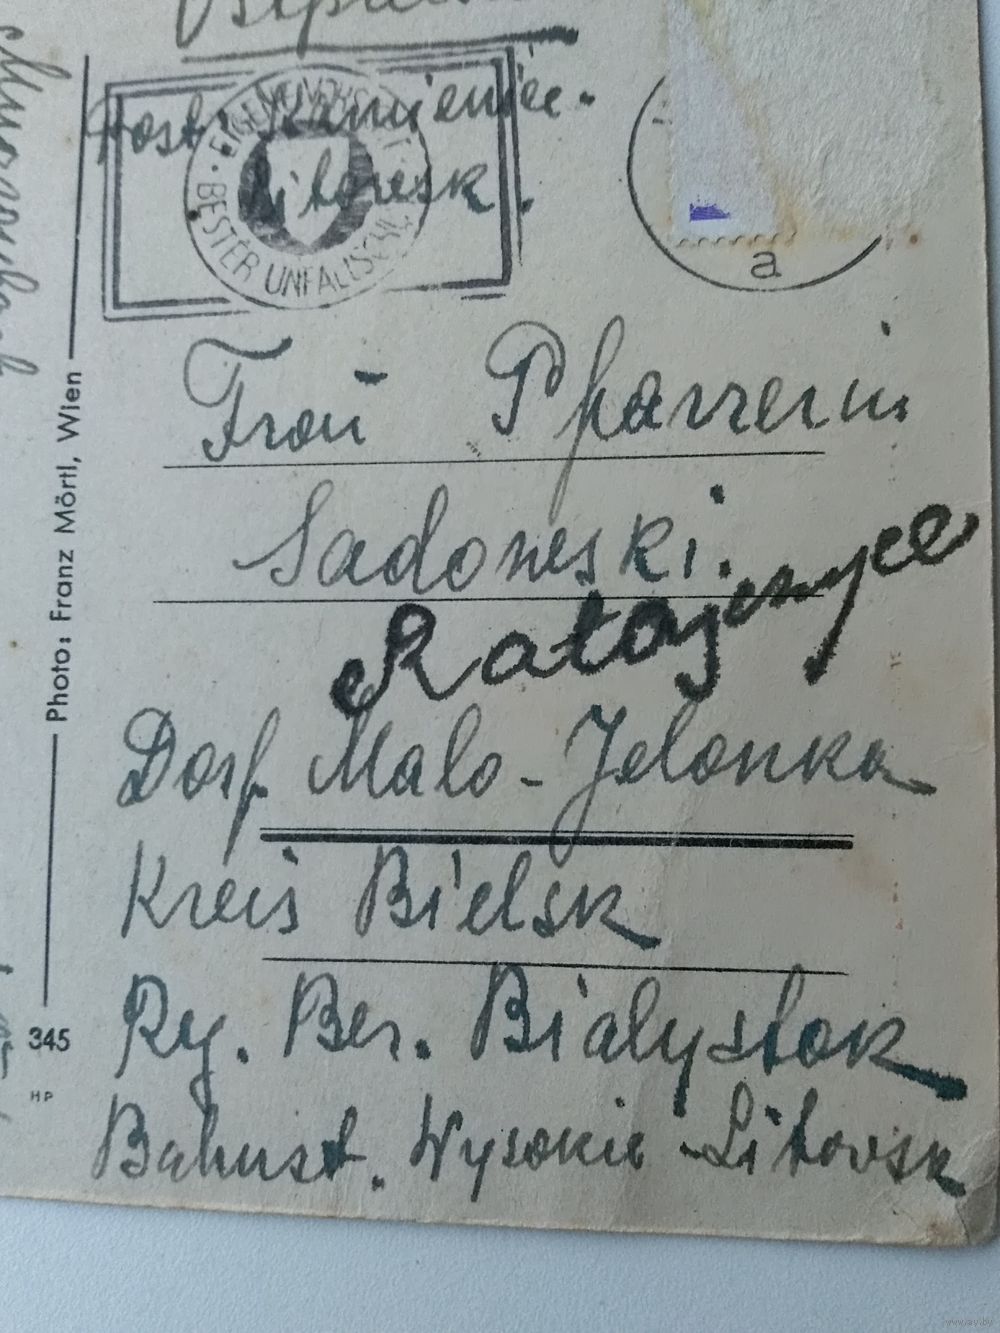 Post Kamieniec-
Litowsk.
EIGENE VORSICHT · BESTER UNFALLSCHUTZ ·
a
Frau Pfarrerin
Sadowski.
Ratajczyce
Dorf Malo-Jelonka
Kreis Bielsk
Rg. Ber. Bialystok
Bahnst. Wysokie-Litovsk
Photo: Franz Mörtl, Wien
345
HP
www.ay.by